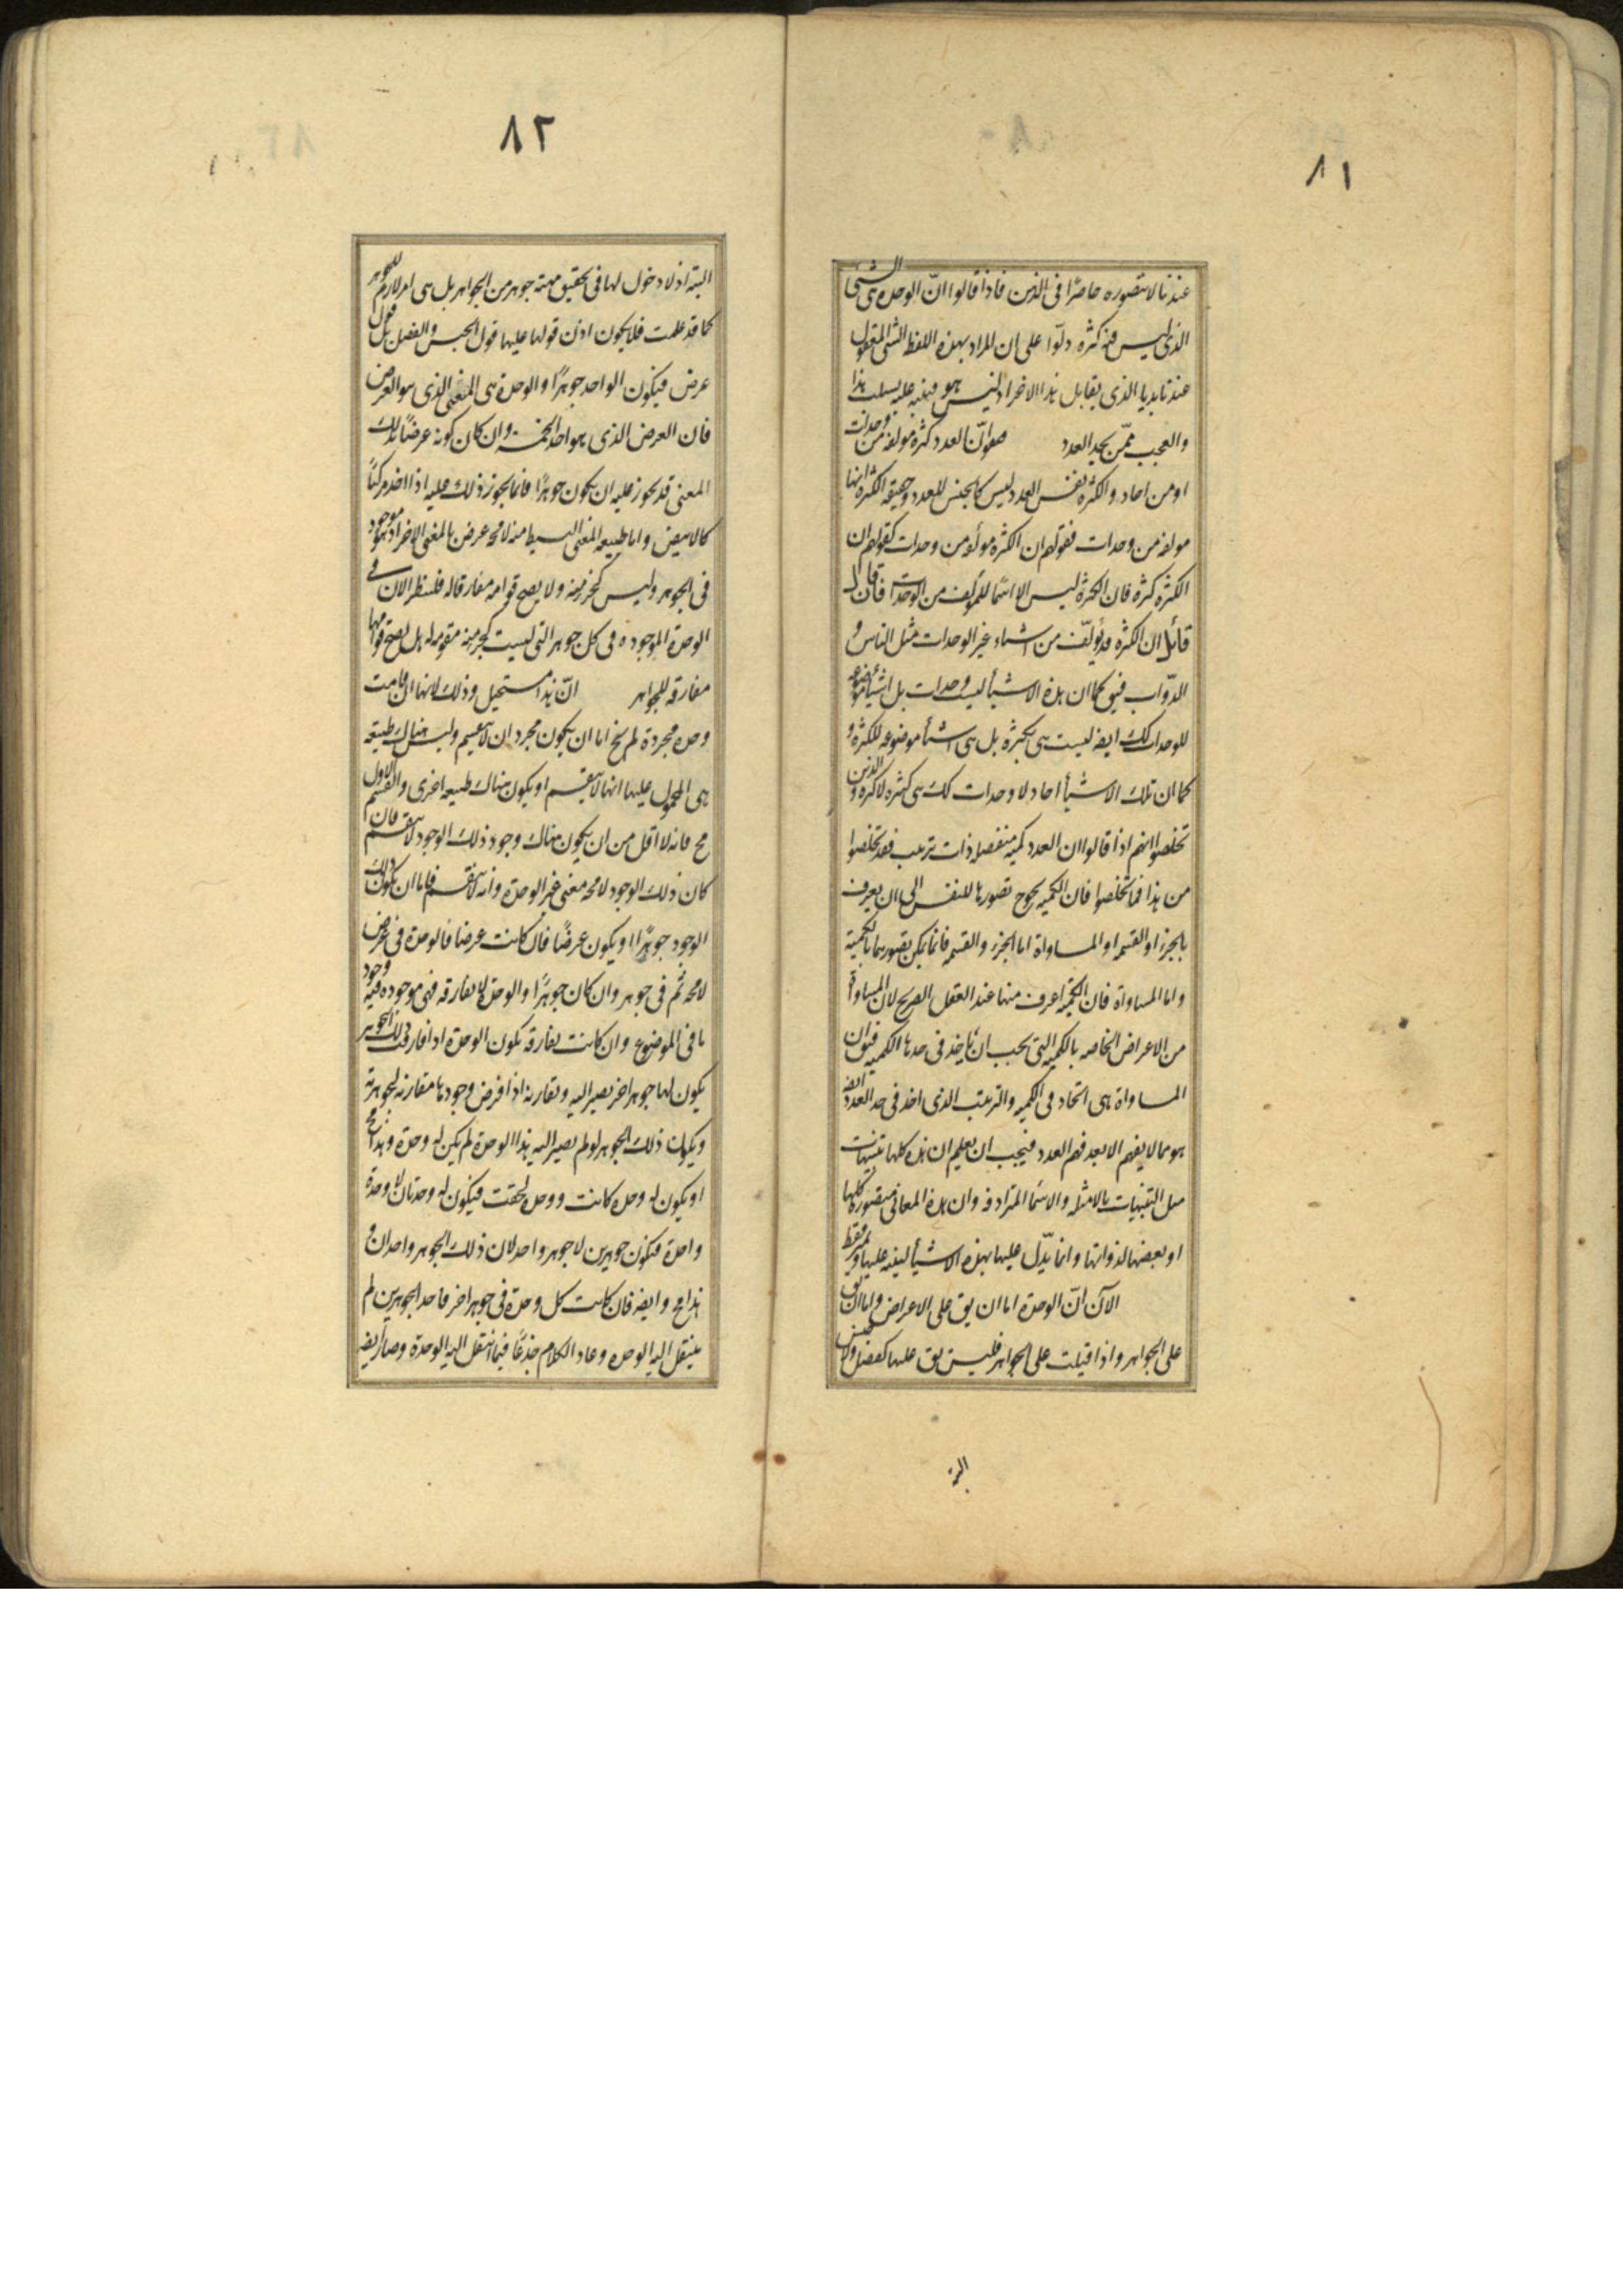 ٨١
عندنا لا نتصوره حاضرًا فى الذهن فاذا قالوا انّ الوحدة هى الشئ
الذى ليس فيه كثرة دلّوا على ان المراد بهذه اللفظ الشئ المعقول
عندنا بديا الذى يقابل هذا الاخر او ليس هو فينبه عليه بسلب هذا
والعجب ممّن يحد العدد فيقول انّ العدد كثرة مولفة من وحدات
او من احاد والكثرة نفس العدد ليس كالجنس للعدد وحقيقة الكثرة انها
مولفة من وحدات فقولهم ان الكثرة مولفة من وحدات كقولهم ان
الكثرة كثرة فان الكثرة ليس الا اسمًا للمؤلف من الوحدات فان قال
قائل ان الكثرة قد يؤلّف من اشياء غير الوحدات مثل الناس و
الدوّاب فيق كما ان هذه الاشياء ليست وحدات بل اشياء موضوعة
للوحدات كك ايضه ليست هى بكثرة بل هى اشياء موضوعة للكثرة و
كما ان تلك الاشياء احاد لا وحدات كك هى كثيرة لا كثرة والذين
تخلصوا انهم اذا قالوا ان العدد كمية منفصلة ذات ترتيب فقد تخلصوا
من هذا فما تخلصوا فان الكمية يحوج تصورها للنفس الى ان يعرف
بالجزء او القسمه او المساواة اما الجزء والقسمه فانما يمكن تصورهما بالكمية
واما المساواة فان الكمية اعرف منها عند العقل الصريح لان المساواة
من الاعراض الخاصه بالكمية التى يجب ان تاخذ فى حدها الكمية فيق ان
المساواة هى اتحاد فى الكمية والترتيب الذى اخذ فى حد العدد ايضه
هو مما لا يفهم الا بعد فهم العدد فيجب ان يعلم ان هذه كلها تنبيهات
مثل التنبيهات بالامثلة والاسماء المترادفة وان هذه المعانى متصورة كلها
او بعضها لذواتها وانما يدّل عليها بهذه الاشياء لينبه عليها و يميز فقط
الآن انّ الوحدة اما ان يق على الاعراض واما ان يق
على الجواهر واذا قيلت على الجواهر فليس يق عليها كفصل ولا جنس
البتة
٨٢
البتة اذ لا دخول لها فى تحقيق مهية جوهر من الجواهر بل هى امر لازم للجوهر
كما قد علمت فلا يكون اذن قولها عليها قول الجنس والفصل بل قول
عرض فيكون الواحد جوهرًا والوحدة هى المعنى الذى هو العرض
فان العرض الذى هو احد الخمسة وان كان كونه عرضًا بذلك
المعنى قد يجوز عليه ان يكون جوهرًا فانما يجوز ذلك عليه اذا اخذ مركبًا
كالابيض واما طبيعة المعنى البسيط منه لا محه عرض بالمعنى الاخر اذ هو موجود
فى الجوهر وليس كجزء منه ولا يصح قوامه مفارقا له فلننظر الان فى
الوحدة الموجودة فى كل جوهر التى ليست بجزء منه مقومة له هل يصح قوامها
مفارقة للجواهر انّ هذا مستحيل وذلك لانها ان قامت
وحدة مجردة لم يخ اما ان يكون مجرد ان لا ينقسم وليس هناك طبيعة
هى المحمول عليها انها لا ينقسم او يكون هناك طبيعة اخرى والقسم الاول
مح فانه لا اقل من ان يكون هناك وجود ذلك الوجود لا ينقسم فان
كان ذلك الوجود لا محه معنى غير الوحدة وانه لا ينقسم فاما ان يكون ذلك
الوجود جوهرًا او يكون عرضًا فان كانت عرضا فالوحدة فى عرض
لا محه ثم فى جوهر وان كان جوهرًا والوحدة لا يفارقه فهى موجودة فيه وجود
ما فى الموضوع وان كانت يفارقه يكون الوحدة اذا فارقت ذلك الجوهر
يكون لها جوهر اخر يصير اليه ويقارنه اذا فرض وجودها مقارنه لجوهرية
ويكون ذلك الجوهر لو لم يصير اليه هذا الوحدة لم يكن له وحدة وهذا مح
او يكون له وحدة كانت ووحدة لحقت فيكون له وحدتان لا وحدة
واحدة فيكون جوهرين لا جوهر واحد لان ذلك الجوهر واحدان و
هذا مح وايضه فان كانت كل وحدة فى جوهر اخر فاحد الجوهرين لم
ينتقل اليه الوحدة وعاد الكلام جذعًا فيما انتقل اليه الوحدة وصار ايضه